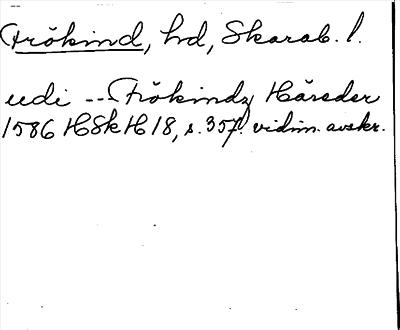 Frökind, hd, Skarab. l.
udi --- Frökindz Häreder
1586 HSkH 18, s. 357. vidim. avskr.